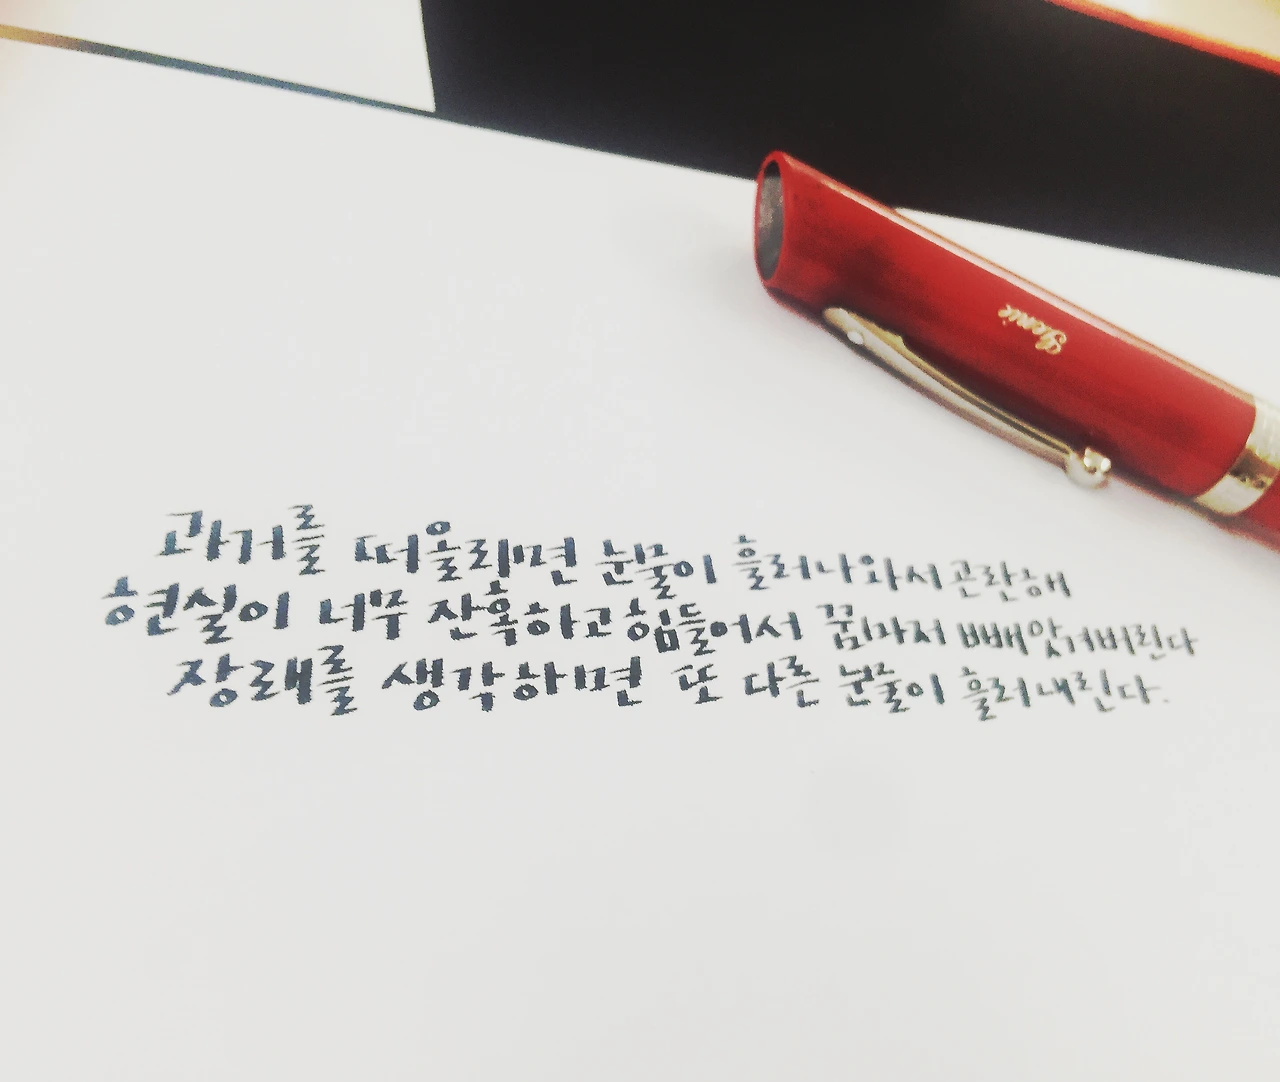 Genie
과거를 떠올리면 눈물이 흘러나와서 곤란해
현실이 너무 잔혹하고 힘들어서 꿈마저 빼앗겨버린다
장래를 생각하면 또 다른 눈물이 흘러내린다.